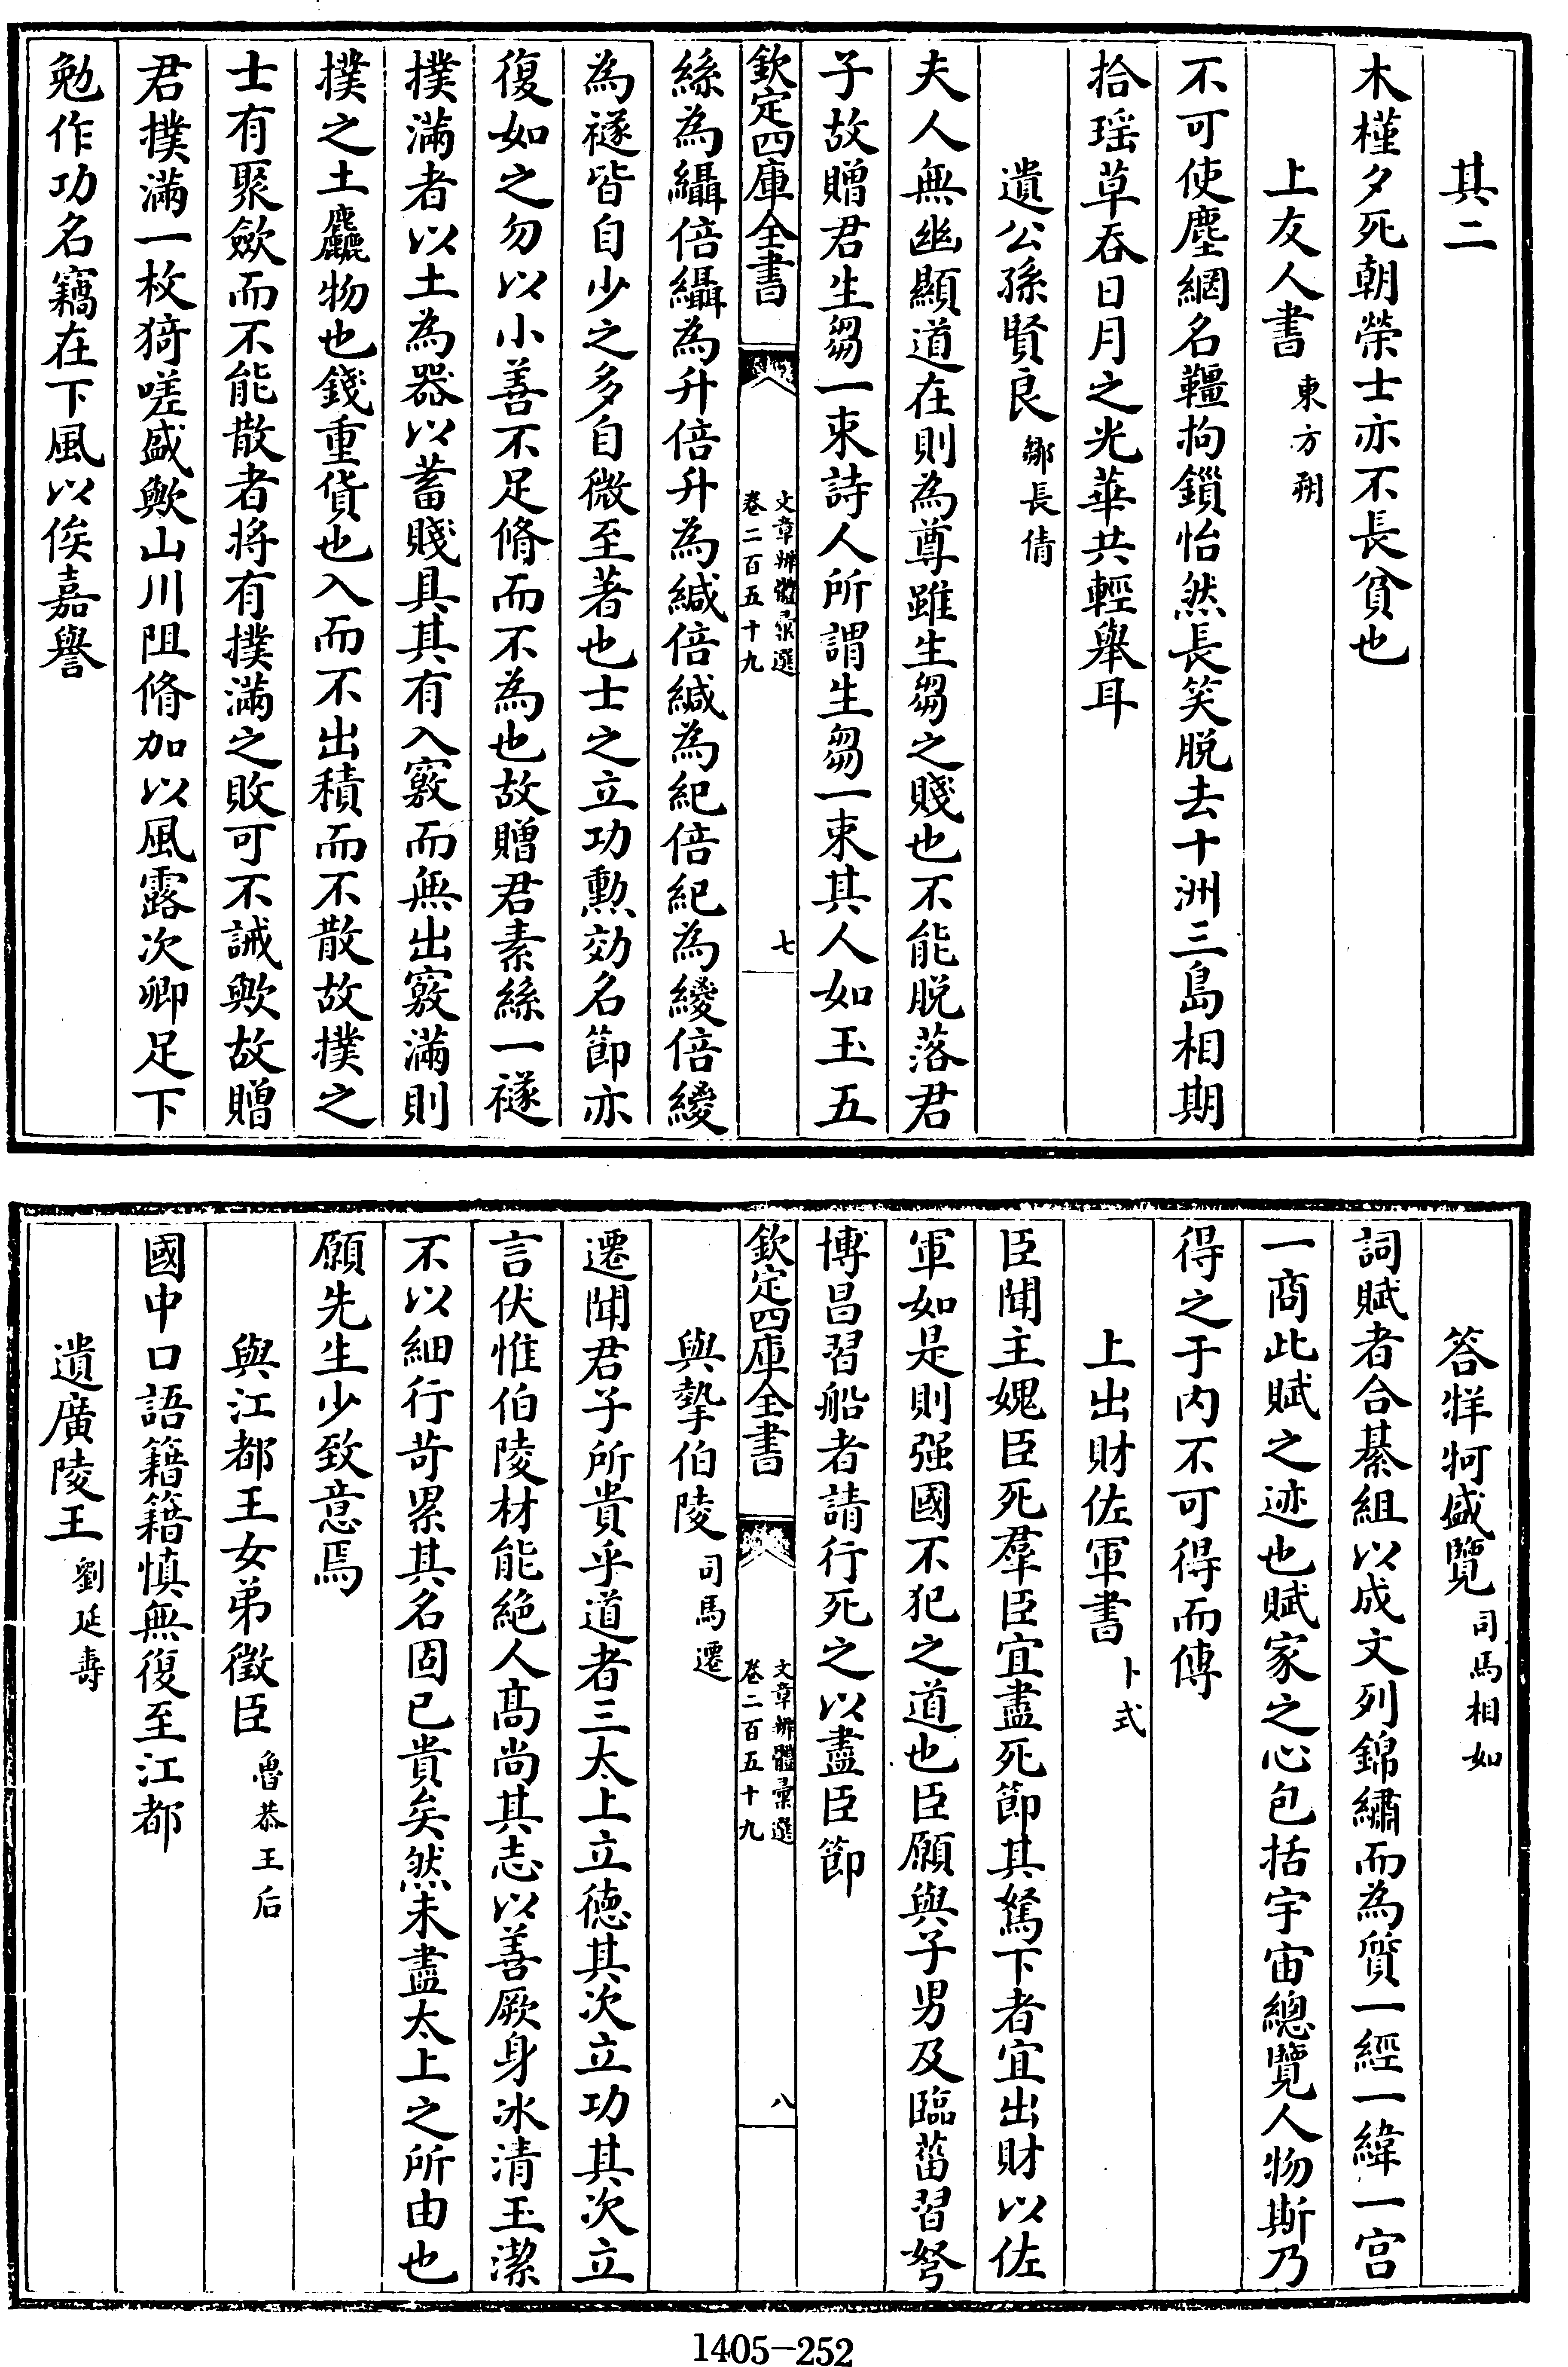 其二
木槿夕死朝榮士亦不長貧也
上友人書 東方朔
不可使塵網名韁拘鎖怡然長笑脱去十洲三島相期
拾瑶草吞日月之光華共輕舉耳
遺公孫賢良 鄒長倩
夫人無幽顯道在則為尊雖生芻之賤也不能脱落君
子故贈君生芻一束詩人所謂生芻一束其人如玉五
欽定四庫全書 文章辨體彙選 卷二百五十九 七
絲為䌰倍䌰為升倍升為緎倍緎為紀倍紀為緵倍緵
為襚皆自少之多自微至著也士之立功勲効名節亦
復如之勿以小善不足脩而不為也故贈君素絲一襚
撲滿者以土為器以蓄賤具其有入竅而無出竅滿則
撲之土麤物也錢重貨也入而不出積而不散故撲之
士有聚斂而不能散者將有撲滿之敗可不誡歟故贈
君撲滿一枚猗嗟盛歟山川阻脩加以風露次卿足下
勉作功名竊在下風以俟嘉譽
答牂牁盛覽 司馬相如
詞賦者合綦組以成文列錦繡而為質一經一緯一宫
一商此賦之迹也賦家之心包括宇宙總覽人物斯乃
得之于内不可得而傳
上出財佐軍書 卜式
臣聞主媿臣死羣臣宜盡死節其駑下者宜出財以佐
軍如是則强國不犯之道也臣願與子男及臨菑習弩
博昌習船者請行死之以盡臣節
欽定四庫全書 文章辨體彙選 卷二百五十九 八
與摯伯陵 司馬遷
遷聞君子所貴乎道者三太上立德其次立功其次立
言伏惟伯陵材能絶人髙尚其志以善厥身冰清玉潔
不以細行苛累其名固已貴矣然未盡太上之所由也
願先生少致意焉
與江都王女弟徵臣 魯恭王后
國中口語籍籍慎無復至江都
遺廣陵王 劉延壽
1405-252